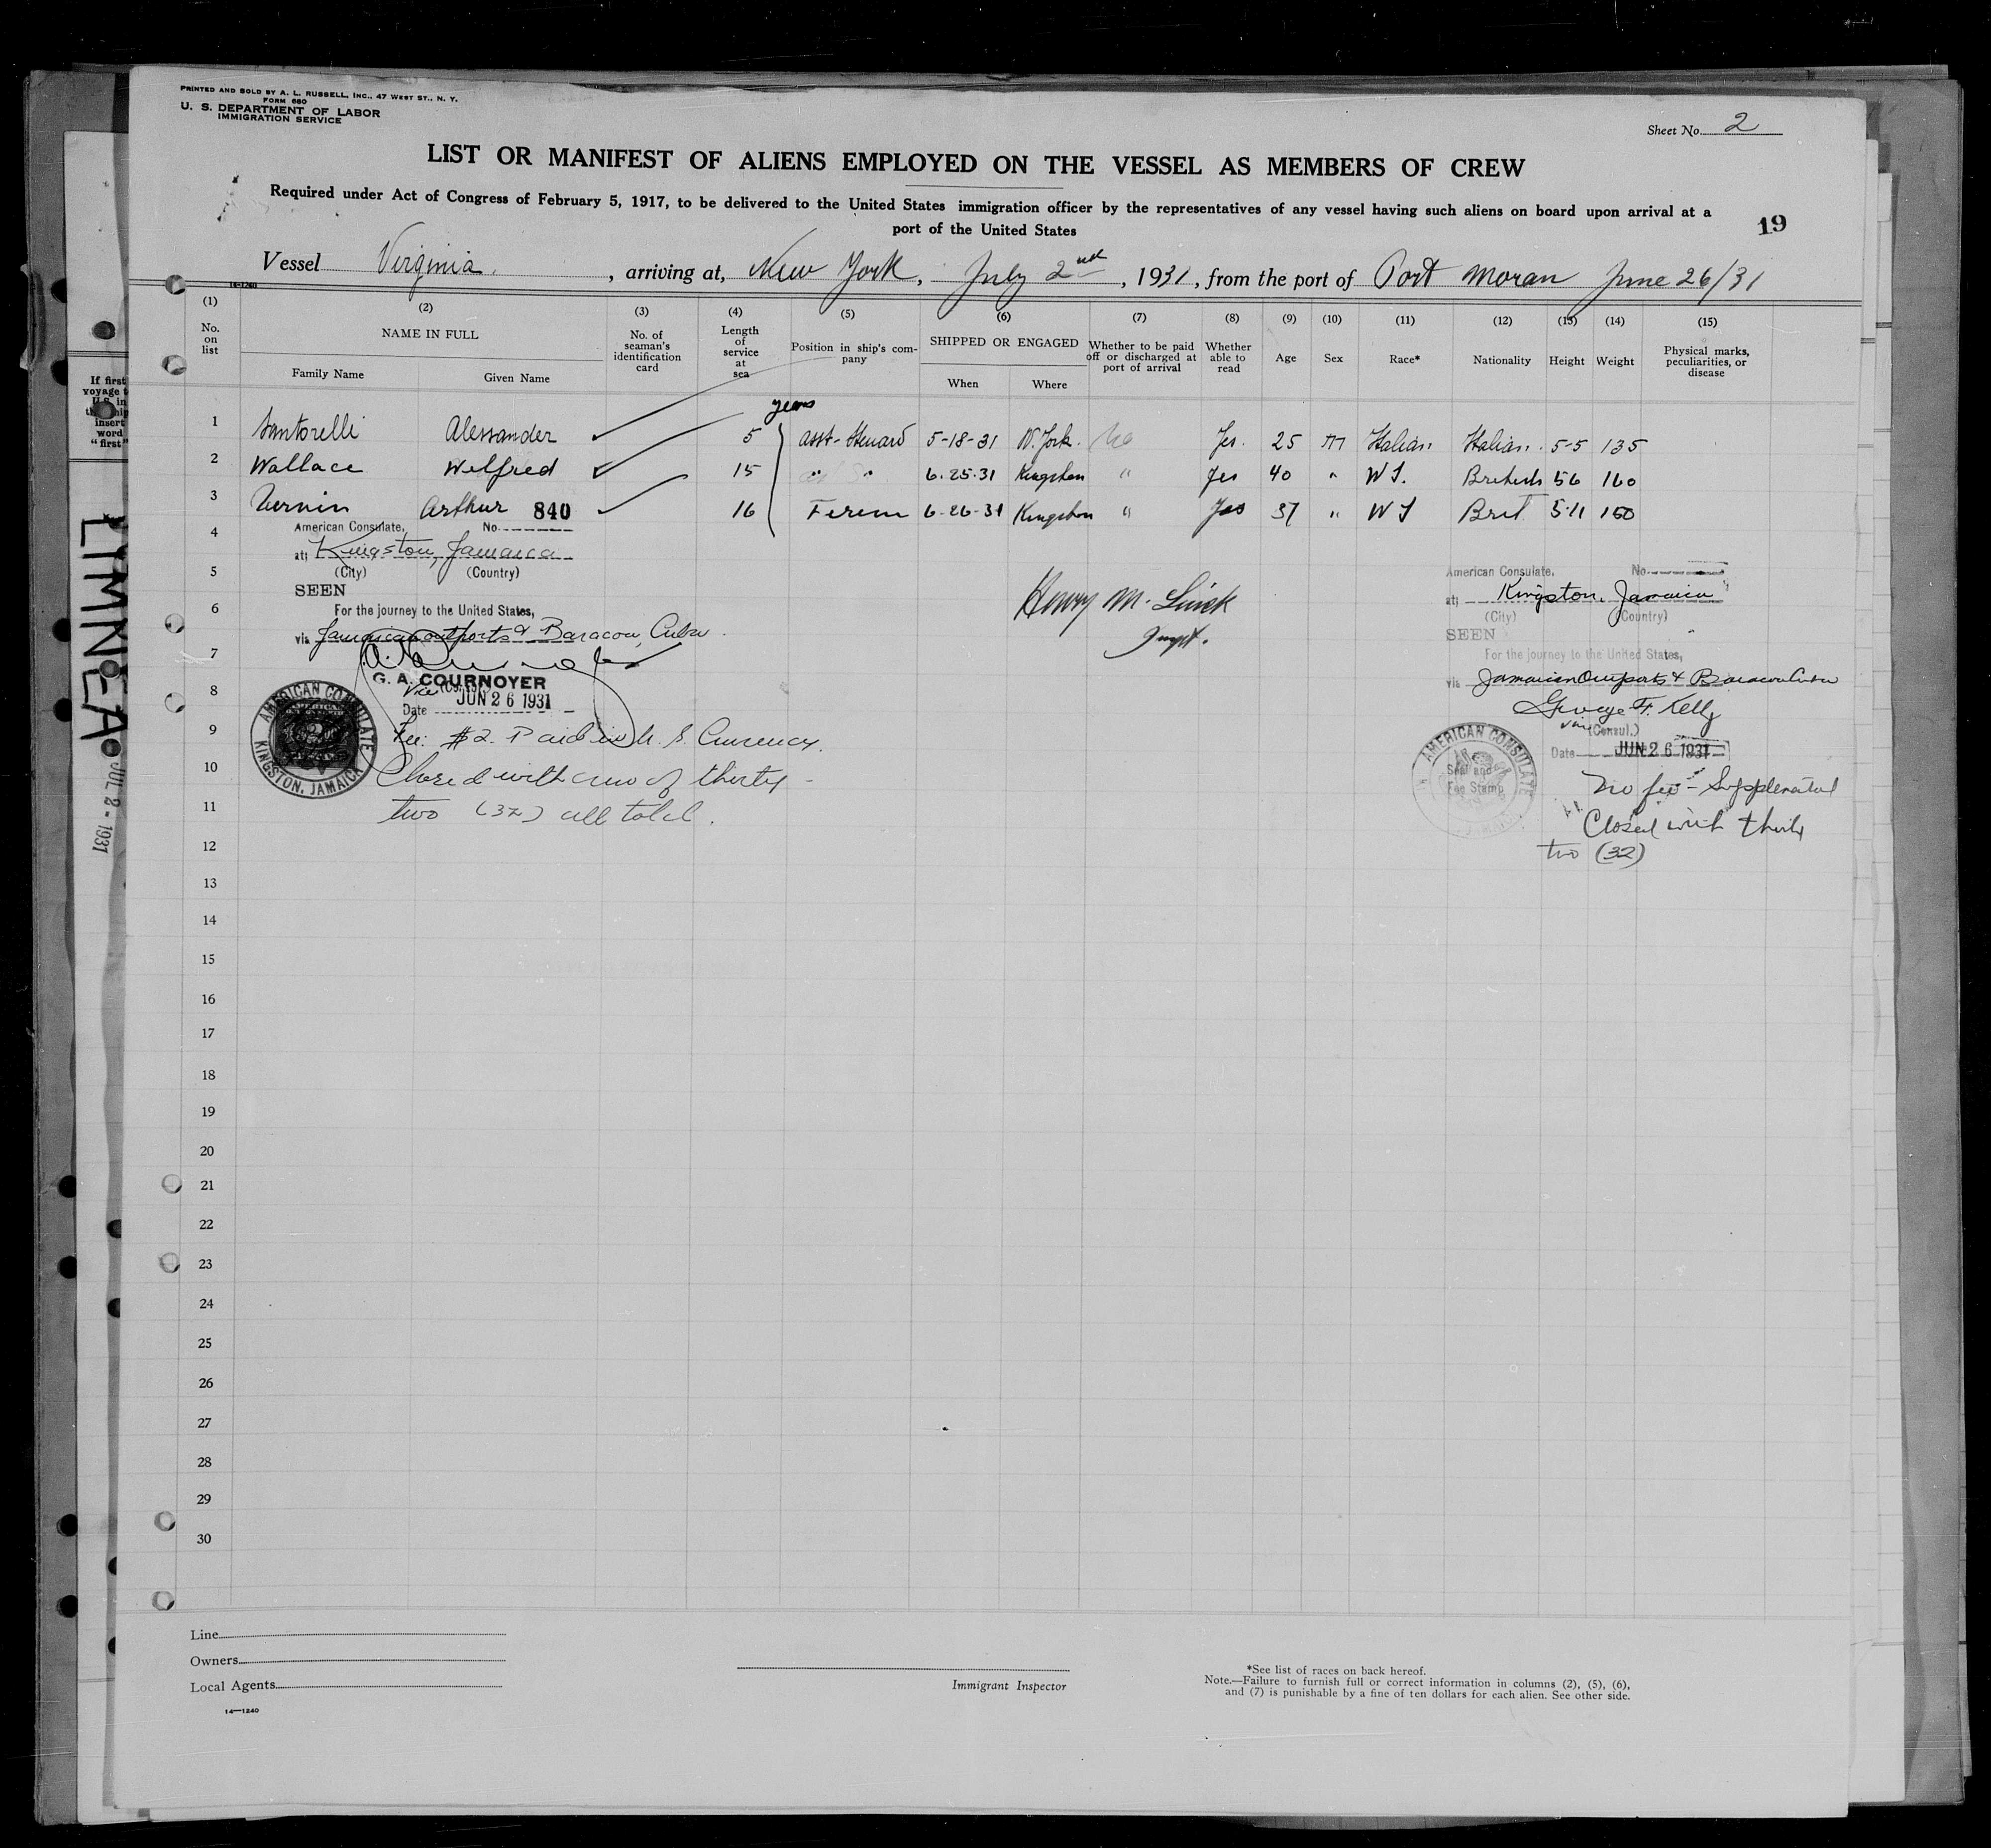 PRINTED AND SOLD BY A. L. RUSSELL, INC., 47 WEST ST., N. Y.
FORM 680
U. S. DEPARTMENT OF LABOR
IMMIGRATION SERVICE
Sheet No. 2
LIST OR MANIFEST OF ALIENS EMPLOYED ON THE VESSEL AS MEMBERS OF CREW
Required under Act of Congress of February 5, 1917, to be delivered to the United States immigration officer by the representatives of any vessel having such aliens on board upon arrival at a
port of the United States
19
Vessel Virginia, arriving at, New York, July 2nd, 1931, from the port of Port Moran June 26/31
(1) (2) (3) (4) (5) (6) (7) (8) (9) (10) (11) (12) (13) (14) (15)
No. on list
NAME IN FULL
Family Name Given Name
No. of seaman's identification card
Length of service at sea
Position in ship's company
SHIPPED OR ENGAGED
When Where
Whether to be paid off or discharged at port of arrival
Whether able to read
Age
Sex
Race*
Nationality
Height
Weight
Physical marks, peculiarities, or disease
years
1 Santorelli Alessander 5 asst-Steward 5-18-31 N. York. No Yes. 25 m Italian Italian. 5-5 135
2 Wallace Wilfred 15 " " 6.25.31 Kingston " Yes 40 " W I. British 56 160
3 Vernin Arthur 16 Firem 6-26-31 Kingston " Yes 37 " W I Brit 5-11 160
4
5
6
7
8
9
10
11
12
13
14
15
16
17
18
19
20
21
22
23
24
25
26
27
28
29
30
American Consulate, No. 840
at Kingston, Jamaica
(City) (Country)
SEEN
For the journey to the United States,
via Jamaican outports & Baracoa, Cuba
G. A. COURNOYER
Vice (Consul.)
Date JUN 26 1931
AMERICAN CONSULATE
KINGSTON, JAMAICA
Fee: $2. Paid in U. S. Currency.
Closed with crew of thirty -
two (32) all told.
Henry M.
Inspt.
American Consulate, No.
at Kingston, Jamaica
(City) (Country)
SEEN
For the journey to the United States,
via Jamaican Outports & Baracoa Cuba
George F. Kelly
Vice (Consul.)
Date JUN 26 1931
AMERICAN CONSULATE
Seal and
Fee Stamp
No fee - Supplemental
Closed with thirty
two (32)
If first
voyage to
U.S. in
this ship
insert
word
"first"
LIMNEA
JUL 2 - 1931
Line
Owners
Local Agents
14—1240
Immigrant Inspector
*See list of races on back hereof.
Note.—Failure to furnish full or correct information in columns (2), (5), (6),
and (7) is punishable by a fine of ten dollars for each alien. See other side.